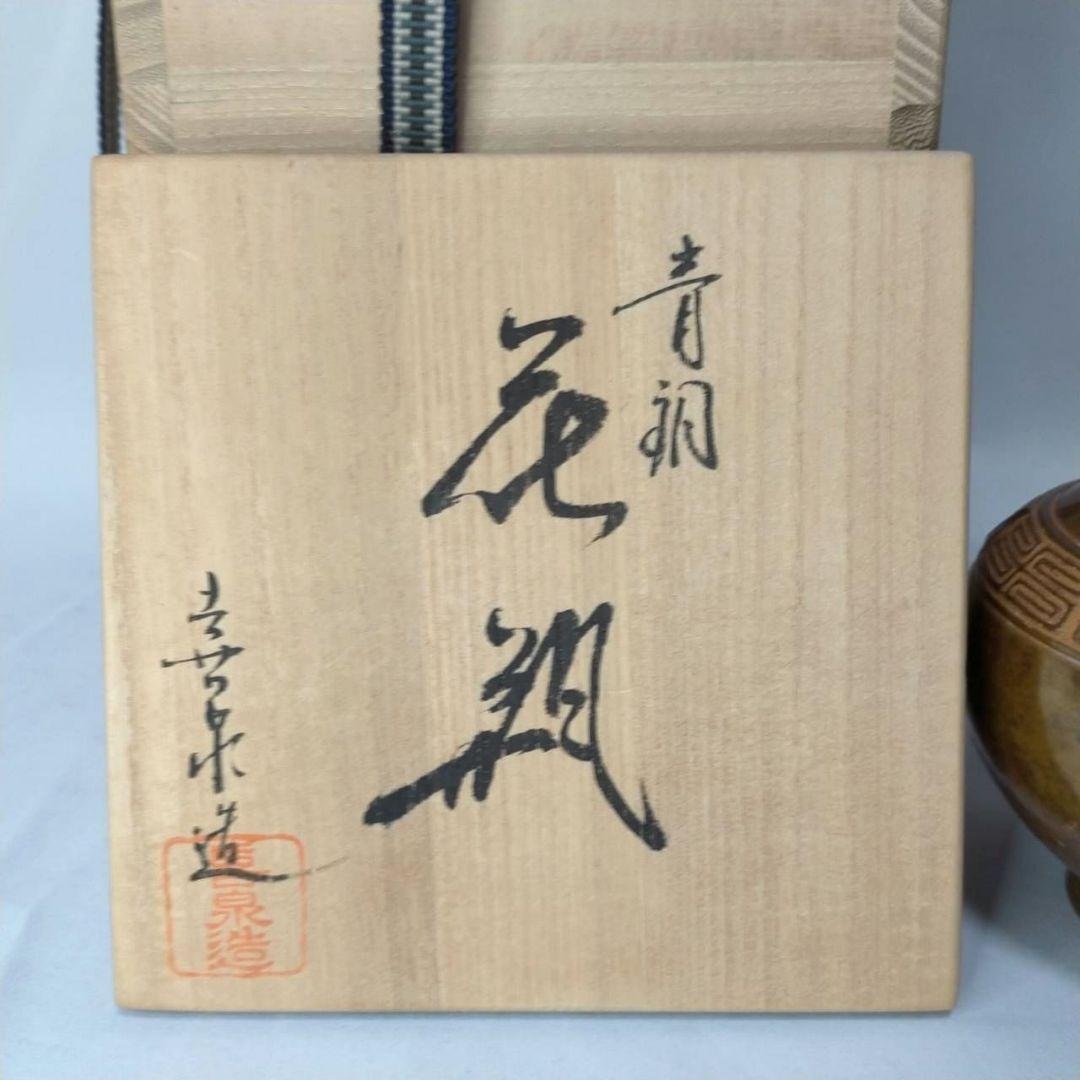 青銅
花瓶
喜泉造
喜泉造